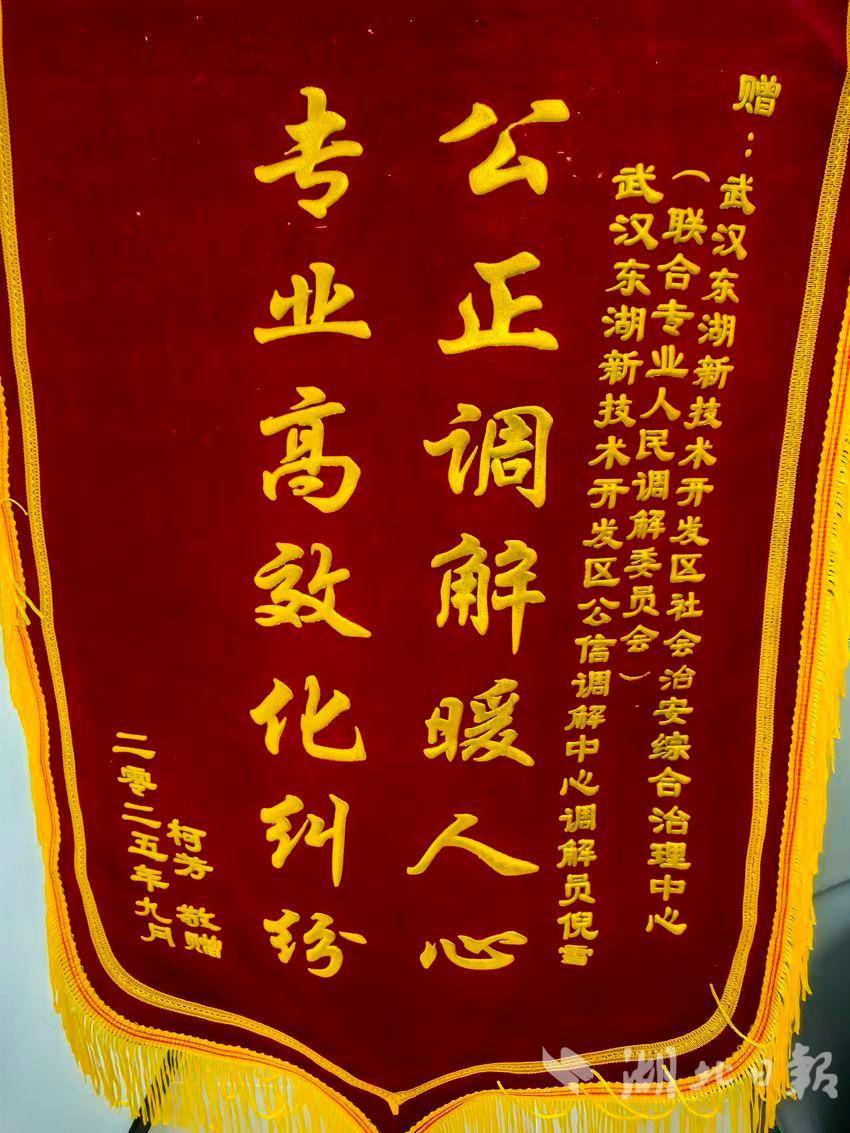 赠：武汉东湖新技术开发区社会治安综合治理中心
（联合专业人民调解委员会）
武汉东湖新技术开发区公信调解中心调解员倪雪
公正调解暖人心
专业高效化纠纷
柯芳 敬赠
二零二五年九月
湖北日報